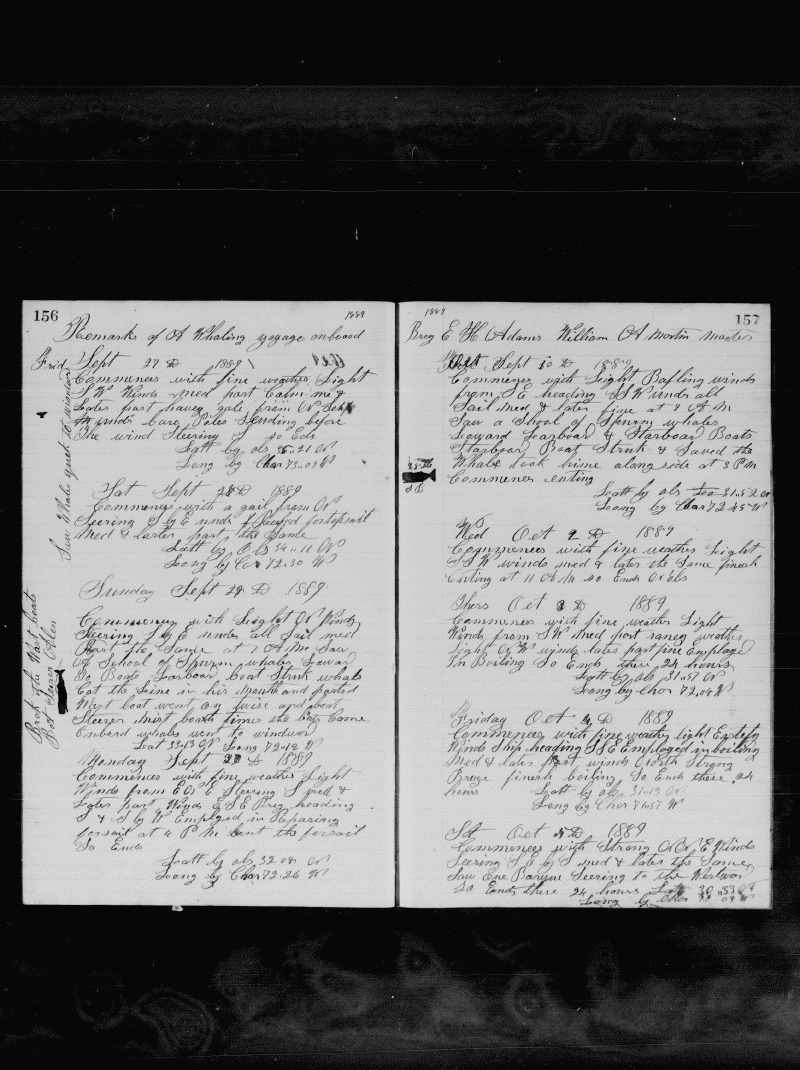 156
1889
Remarks of A Whaling voyage onboard
Frid Sept 27 D 1889
Commences with fine weather Light
S W Winds med part Calm
Later part heavy gale from N
bare Poles Skuding before
The wind Steering S so Eds
Latt by obs 35.21 N
Long by Chor 73.09 W
Sat Sept 28 D 1889
Commences with a gail from N
Steering S by E fortopsail
Med & later part the Same
Latt by Obs 34.11 N
Long by Chor 72.30 W
Saw Whales
Sunday Sept 29 D 1889
Commences with Light N Winds
Steering S by E under all Sail med
Part the Same at 7 A M Saw
A School of Spurm whales Loward
So Boats Larboar boat Struk whale
Got the Line in his Mouth and parted
Wast boat went on twise and boat
Steerer mist boath times the bots Came
Onbord whales went to windward
Lat 33.13 N Long 72.12 W
Brok the Wast boats
Bot Steerer Allen
Monday Sept 30 D 1889
Commences with fine weather Light
Winds from E N E Steering S
Later part Winds E S E Breg heading
S & S by W Employed in Reparing
forsail at 4 P M bent the forsail
So Ends
Latt by obs 32.08 N
Long by Chor 72.26 W
1889
157
Breg E H Adams William A Martin Master
Sept D 1889
Commences with Light Bafling winds
from S E heading S W under all
Sail Med & later fine at 9 A M
Saw a Shool of Spurm whales
Loward Larboar & Starboar Boats
Starboar Boat Struk & Saved the
Whale took hime along side at 3 P M
Commences cuting
Latt by obs 31.52 N
Long by Chor 72.45 W
Wed Oct 2 D 1889
Commences with fine weather Light
S W winds med & later the Same finesh
Cuting at 11 A M so Ends N obs
Thers Oct 3 D 1889
Commences with fine weather Light
Winds from S W Med part raney weather
Light N W winds later part fine Employed
In Boiling So Ends these 24 hours
Latt by obs 31.57 N
Long by Chor 72.04 W
Friday Oct 4 D 1889
Commences with fine weather light
Winds Ship heading S S E Employed in boiling
Med & later part winds North Strong
Breze finesh boiling So Ends these 24
hours Latt by obs 31.19 N
Long by Chor 71.57 W
Sat Oct 5 D 1889
Commences with Strong N N E Winds
Steering S E by S med & later the Same
Saw One Barque Steering to the Westwor
So Ends these 24 hours Latt 30.33 N
Long by Chor